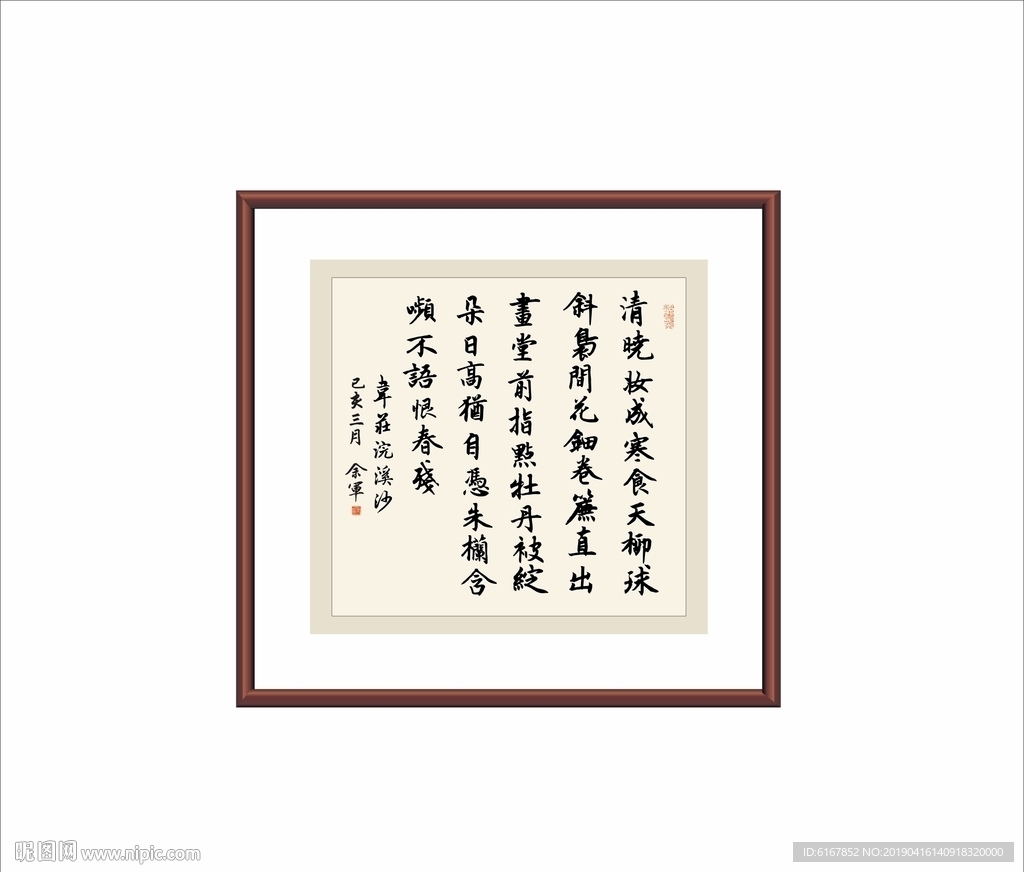 清曉妝成寒食天柳球
斜裊間花鈿卷簾直出
畫堂前指點牡丹初綻
朵日高猶自憑朱欄含
嚬不語恨春殘
韋莊浣溪沙
己亥三月 余軍
昵图网 www.nipic.com
ID:6167852 NO:20190416140918320000